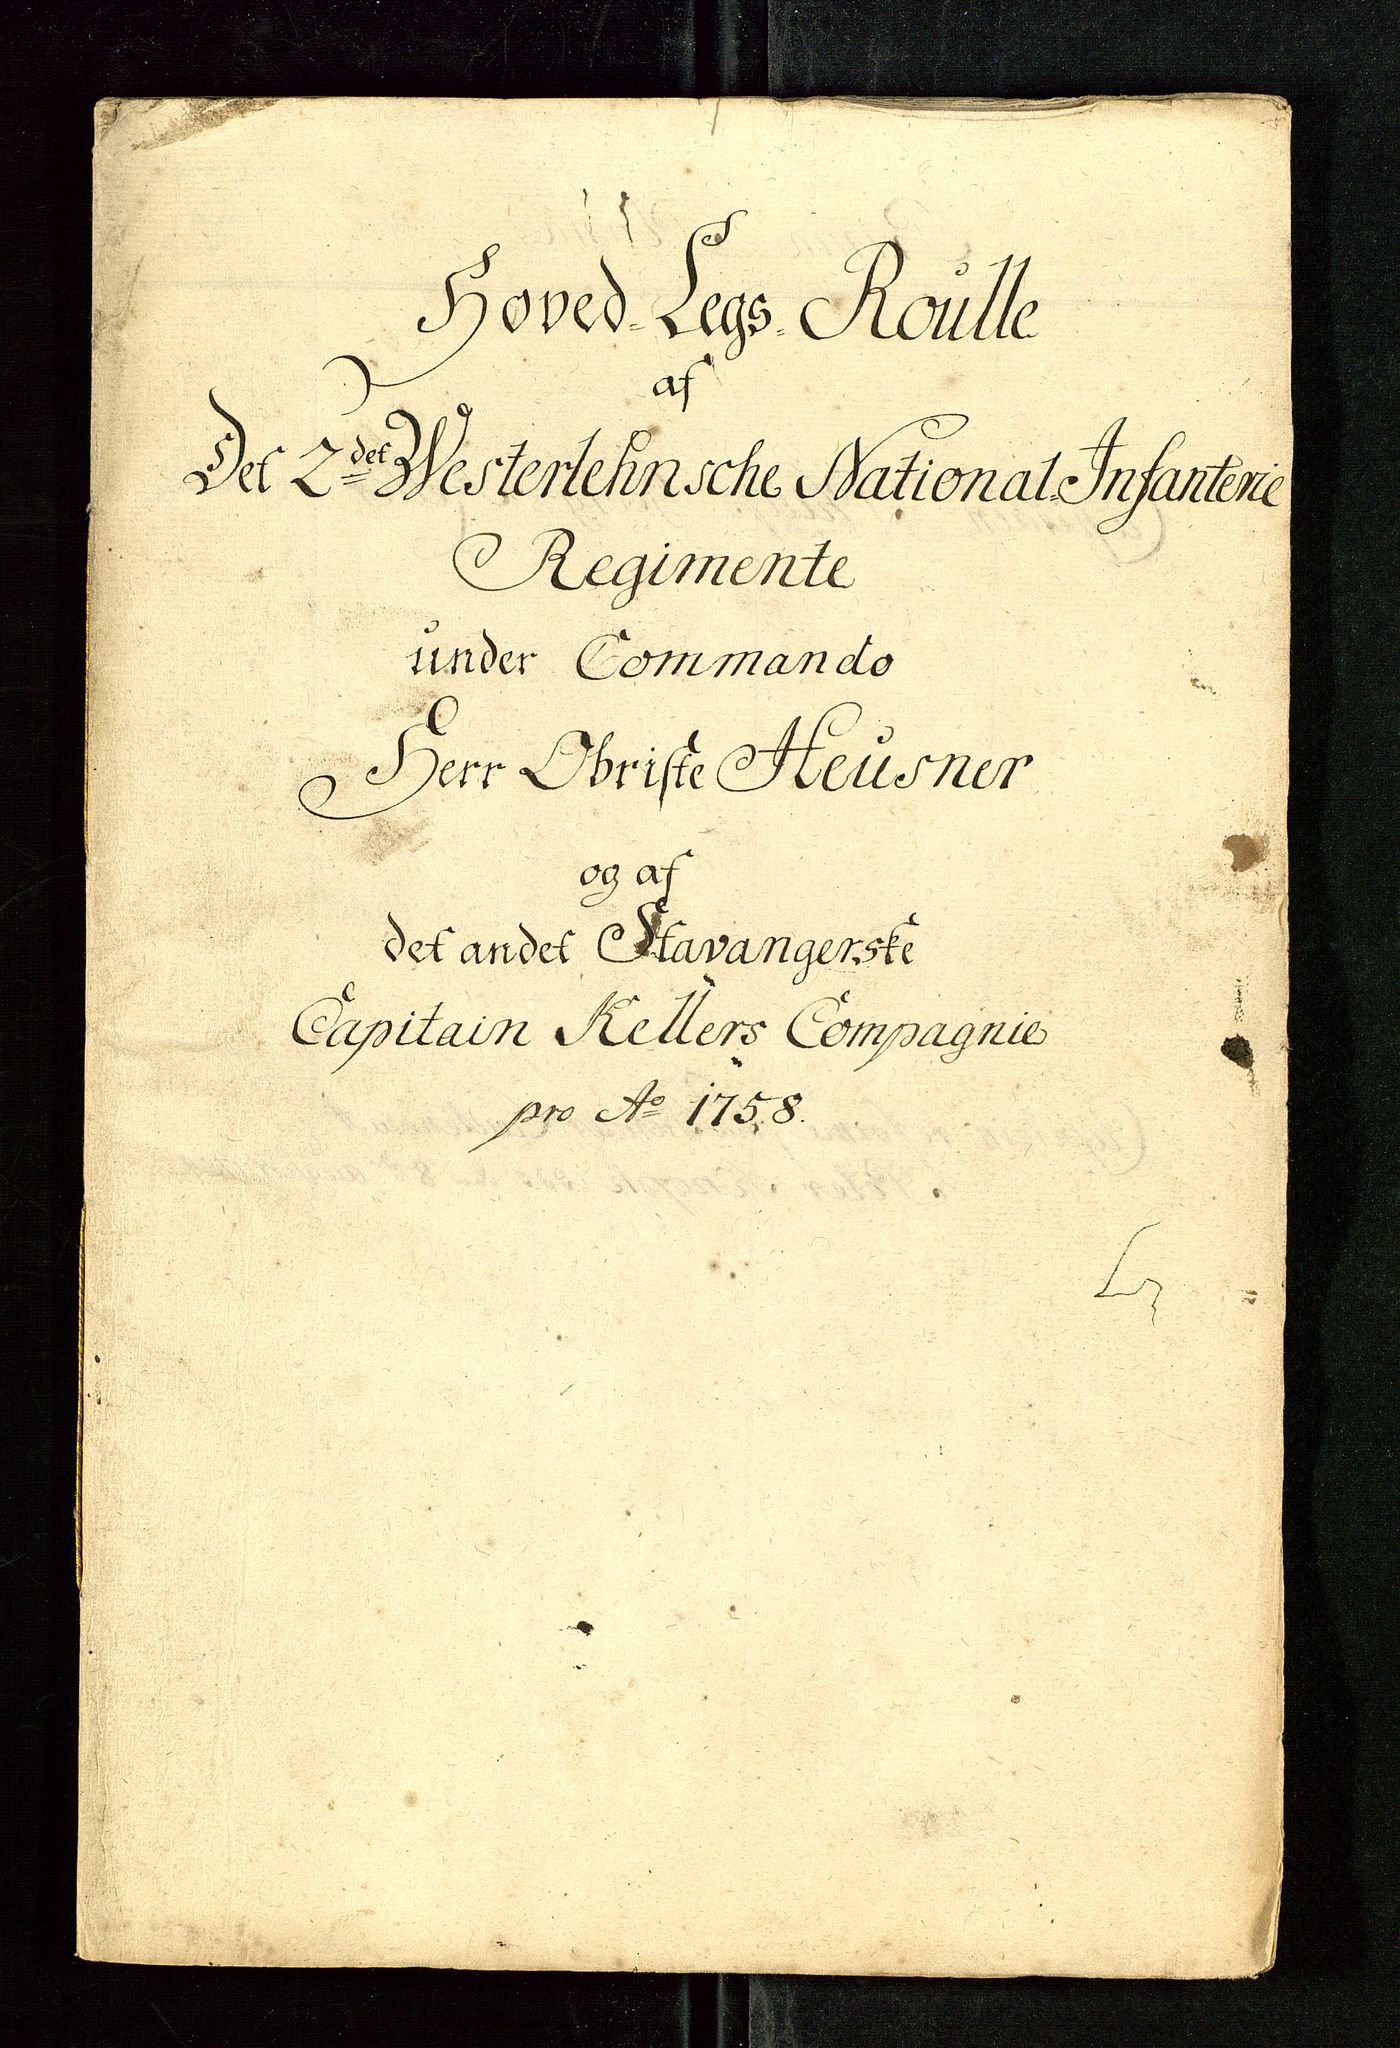 Hoved-Legs-Roulle
af
Det 2det Westerlehnsche National-Infanterie
Regimente
under Commando
Herr Obriste Heusner
og af
det andet Stavangerske
Capitain Kellers Compagnie
pro Ao 1758.